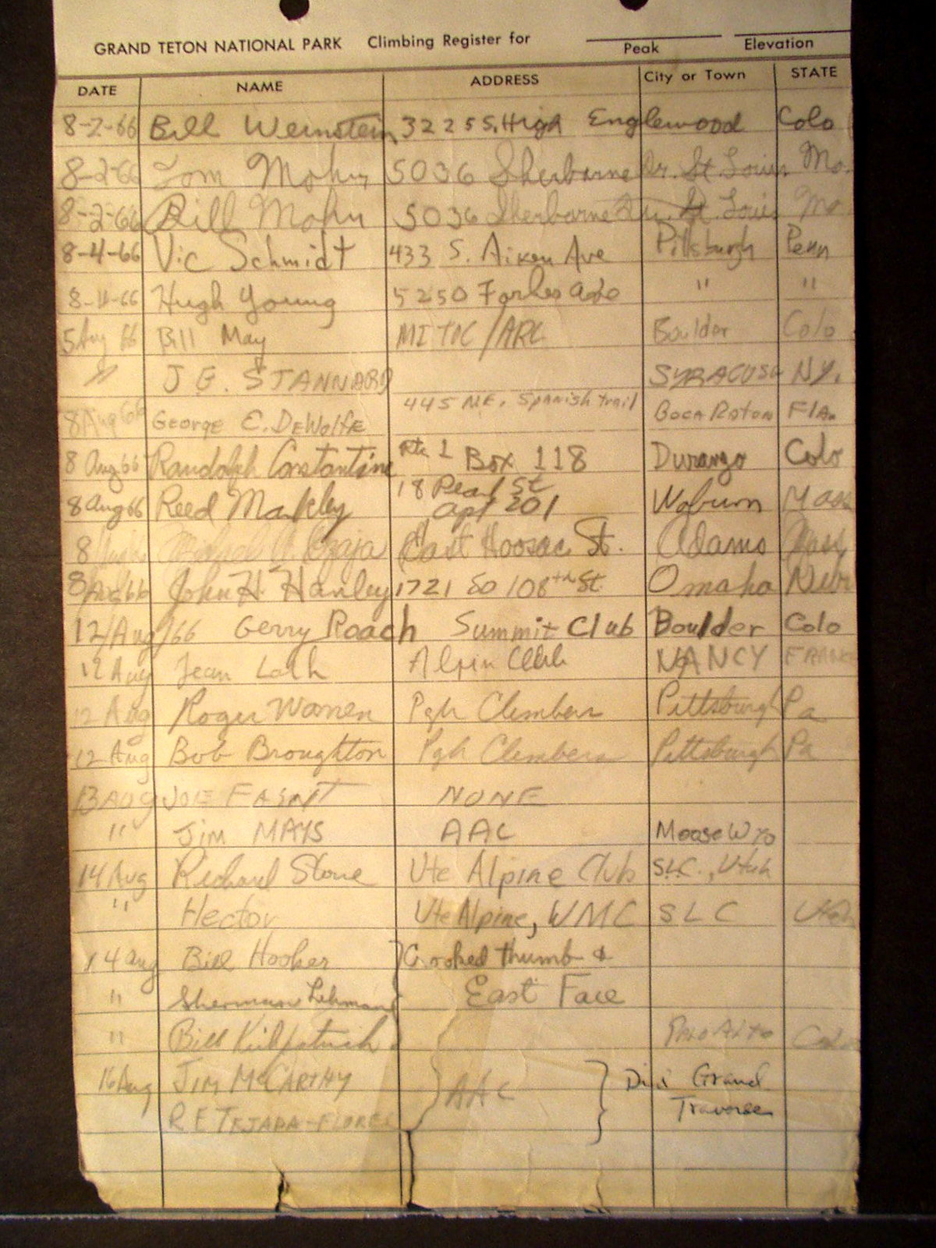 GRAND TETON NATIONAL PARK Climbing Register for
Peak Elevation
DATE NAME ADDRESS City or Town STATE
8-2-66 Bill Weinstein 3225 S. High Englewood Colo
8-2-66 Tom Mohn 5036 Sherborne Dr. St. Louis Mo.
8-2-66 Bill Mohn 5036 Sherborne Dr. St. Louis Mo
8-4-66 Vic Schmidt 433 S. Aiken Ave Pittsburgh Penn
66 Hugh Young 5250 Forbes Ave " "
5 Aug 66 Bill May MITOC/ARC Boulder Colo
" J G. STANNARD SYRACUSE NY.
8 Aug 66 George E. DeWolfe 445 NE. Spanish trail Boca Raton Fla
8 Aug 66 Randolph Constantine Rte 1 Box 118 Durango Colo
8 Aug 66 Reed Markley 18 Pearl St apt 201 Woburn Mass
8 Czaja East Hoosac St. Adams Mass
8 Aug 66 John H. Hanley 1721 So 108th St Omaha Nebr
12/Aug/66 Gerry Roach Summit Club Boulder Colo
12 Aug Jean Alpin Club NANCY FRANCE
12 Aug Roger Warren Pgh Climbers Pittsburgh Pa
12 Aug Bob Broughton Pgh Climbers Pittsburgh Pa
13 AUG JOE NONE
" Jim MAYS AAC Moose Wyo
14 Aug Richard Stone Ute Alpine Club SLC., Utah
" Hector Ute Alpine, WMC SLC Utah
14 aug Bill Hooker Crooked thumb &
" Sherman Lehman East Face
" Bill Kirkpatrick Palo Alto
16 Aug JIM MCCARTHY AAC Did Grand
R E TEJADA-FLORES Traverse